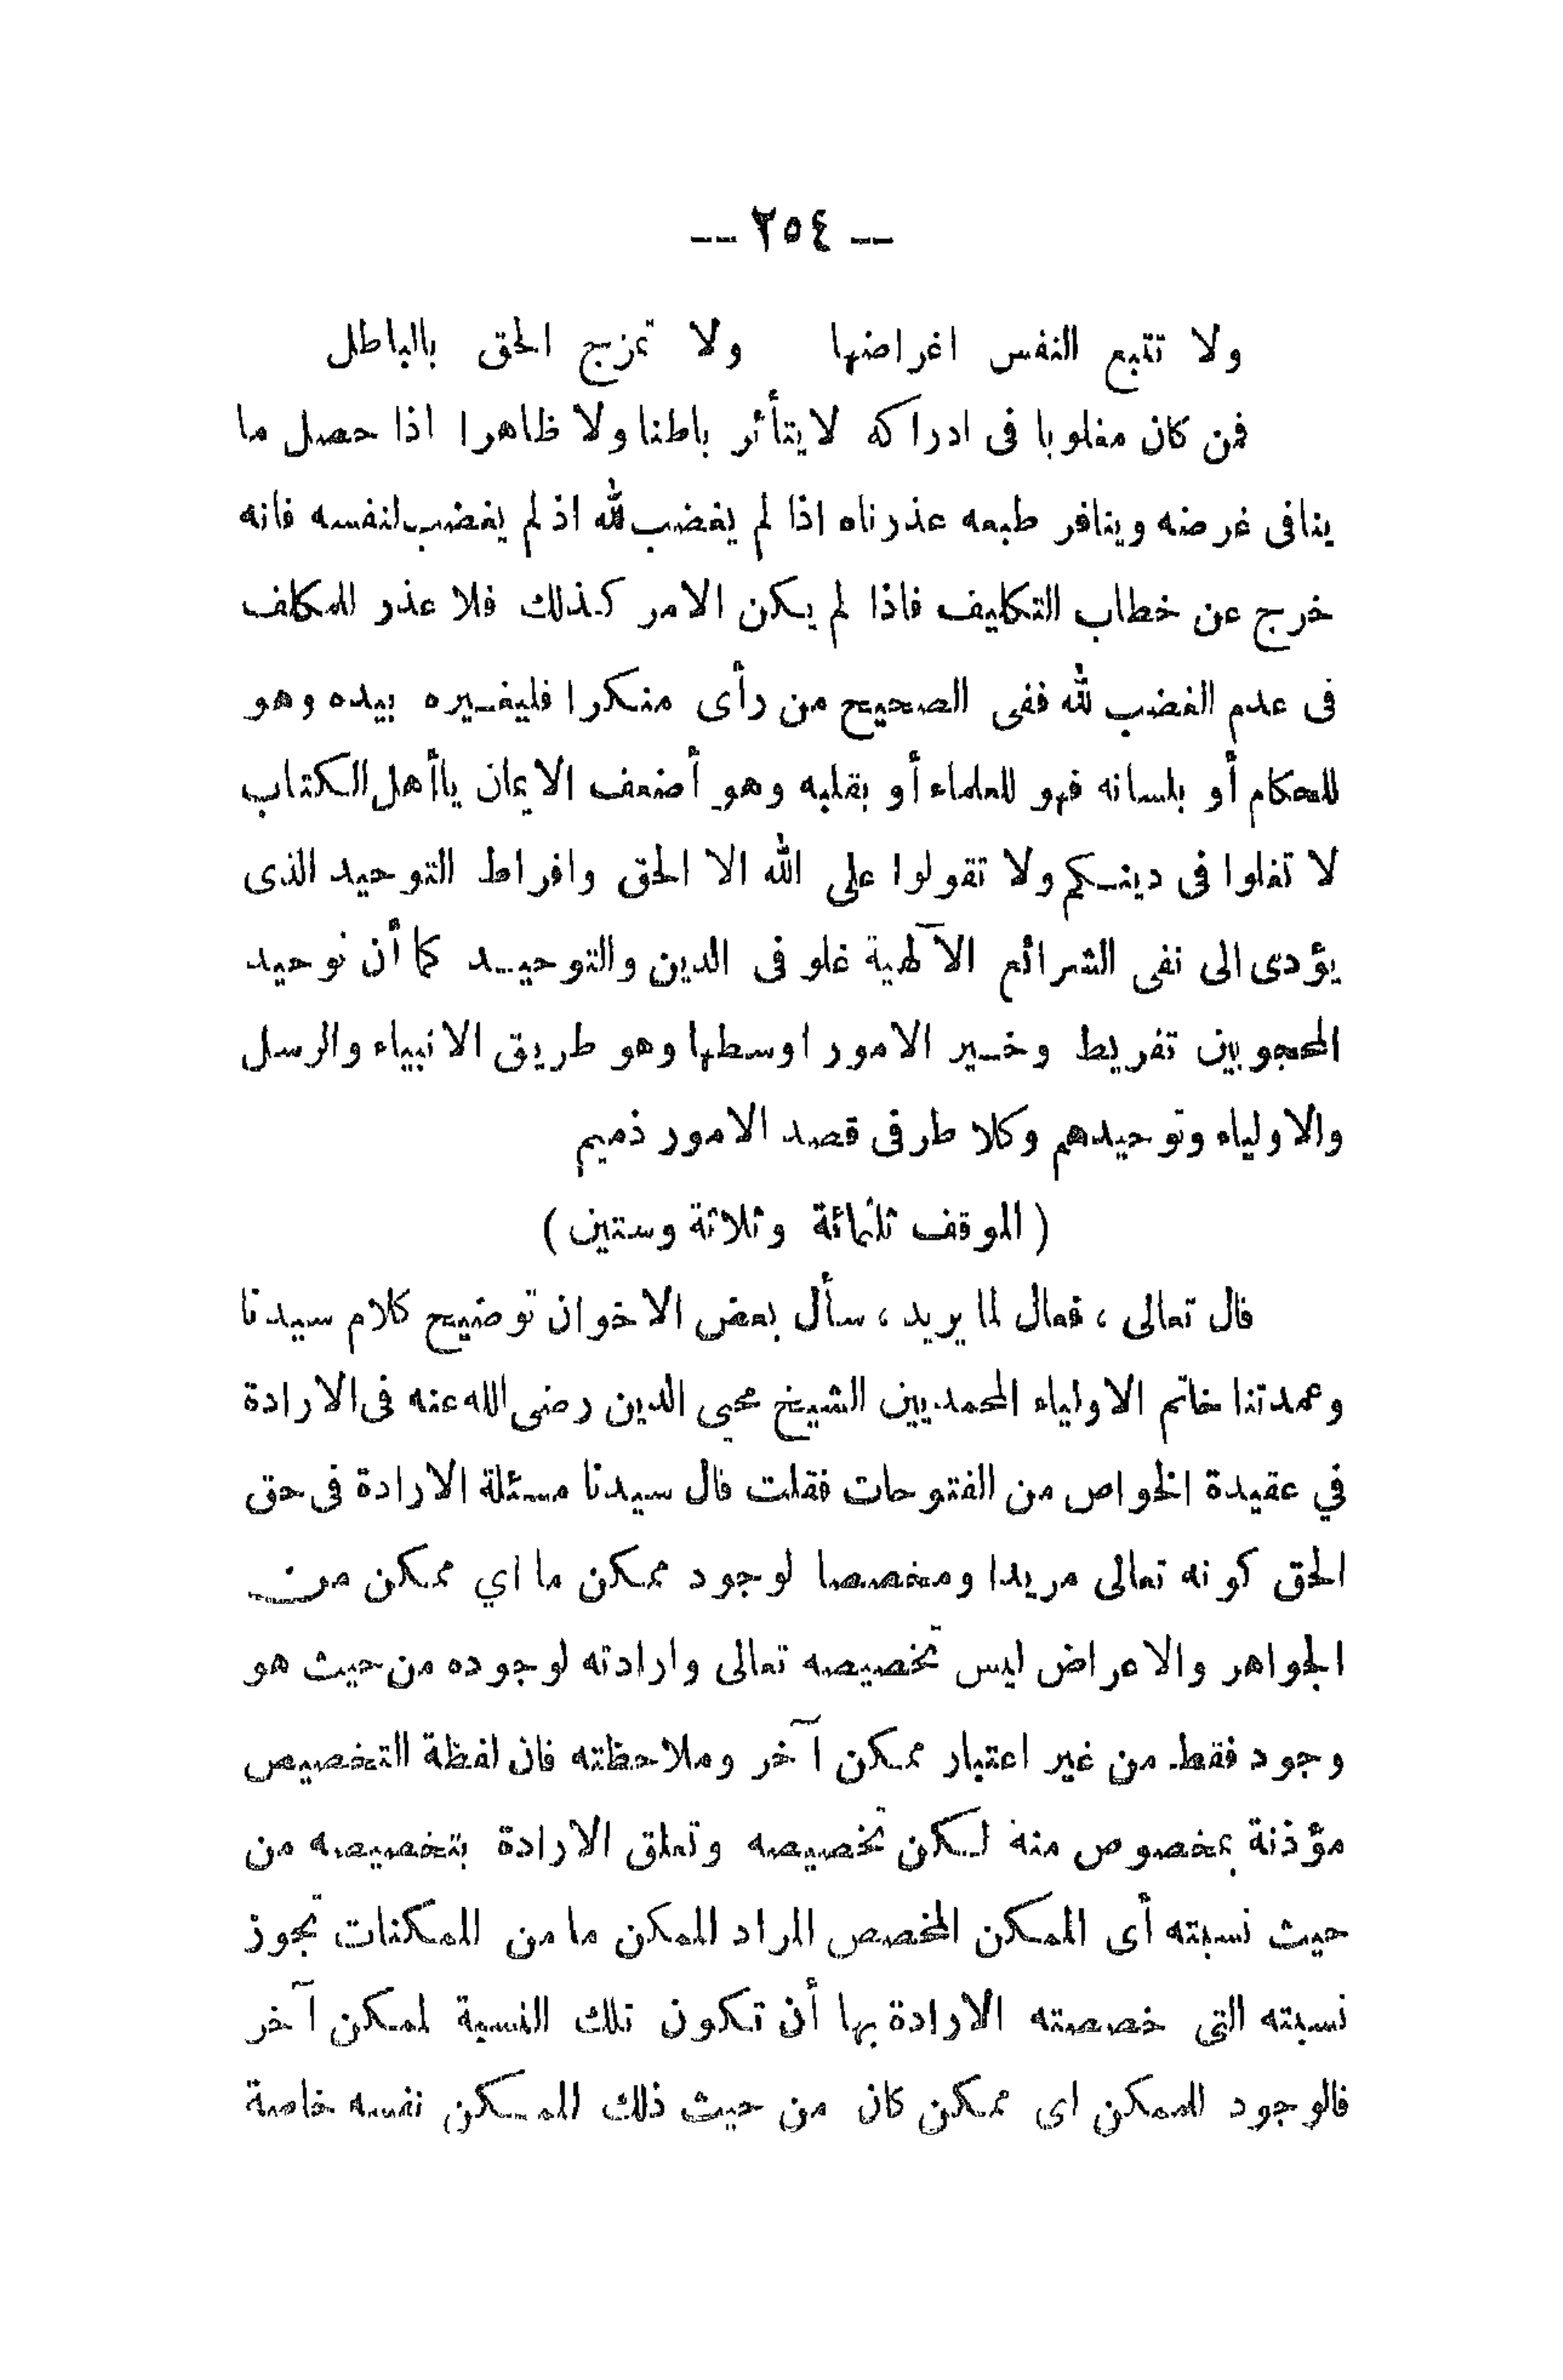 — ٢٥٤ —
ولا تتبع النفس اغراضها ولا تمزج الحق بالباطل
فمن كان مغلوبا فى ادراكه لايتأثر باطنا ولا ظاهرا اذا حصل ما
ينافى غرضه وينافر طبعه عذرناه اذا لم يغضب لله اذ لم يغضب لنفسه فانه
خرج عن خطاب التكليف فاذا لم يكن الامر كذلك فلا عذر للمكلف
فى عدم الغضب لله ففى الصحيح من رأى منكرا فليغيره بيده وهو
للحكام أو بلسانه فهو للعلماء أو بقلبه وهو أضعف الايمان ياأهل الكتاب
لا تغلوا فى دينكم ولا تقولوا على الله الا الحق وافراط التوحيد الذى
يؤدى الى نفى الشرائع الآلهية غلو فى الدين والتوحيد كما أن توحيد
المحجوبين تفريط وخير الامور اوسطها وهو طريق الانبياء والرسل
والاولياء وتوحيدهم وكلا طرفى قصد الامور ذميم
( الموقف ثلثمائة وثلاثة وستين )
قال تعالى ، فعال لما يريد ، سأل بعض الاخوان توضيح كلام سيدنا
وعمدتنا خاتم الاولياء المحمديين الشيخ محيي الدين رضى الله عنه فى الارادة
في عقيدة الخواص من الفتوحات فقلت قال سيدنا مسئلة الارادة فى حق
الحق كونه تعالى مريدا ومخصصا لوجود ممكن ما اي ممكن من
الجواهر والاعراض ليس تخصيصه تعالى وارادته لوجوده من حيث هو
وجود فقط من غير اعتبار ممكن آخر وملاحظته فان لفظة التخصيص
مؤذنة بمخصوص منه لكن تخصيصه وتعلق الارادة بتخصيصه من
حيث نسبته أى الممكن المخصص المراد للممكن ما من الممكنات تجوز
نسبته التى خصصته الارادة بها أن تكون تلك النسبة لممكن آخر
فالوجود للممكن اى ممكن كان من حيث ذلك الممكن نفسه خاصة